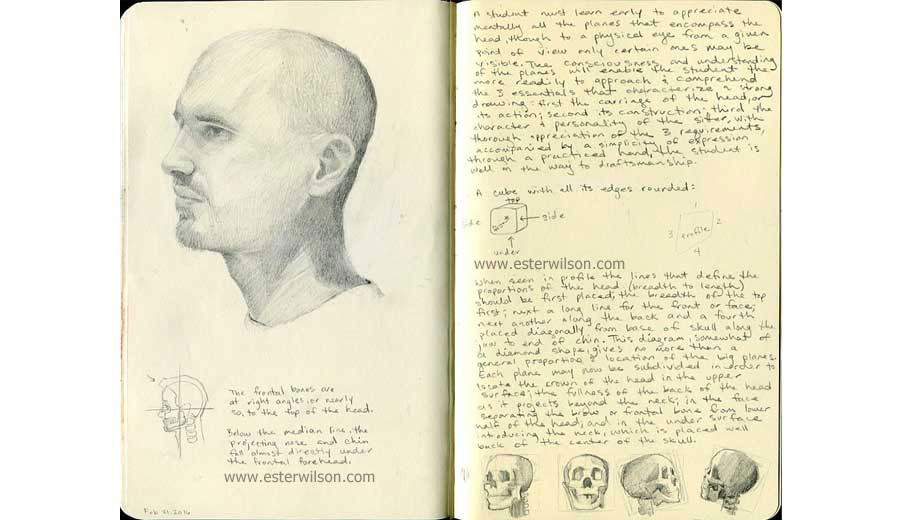 The frontal bones are
at right angles, or nearly
so, to the top of the head.
Below the median line, the
projecting nose and chin
fall almost directly under
the frontal forehead.
www.esterwilson.com
Feb 21, 2016
A student must learn early to appreciate
mentally all the planes that encompass the
head, though to a physical eye from a given
point of view only certain ones may be
visible. The consciousness and understanding
of the planes will enable the student the
more readily to approach & comprehend
the 3 essentials that characterize a strong
drawing: first the carriage of the head, or
its action; second its construction; third the
character & personality of the sitter, with
thorough appreciation of the 3 requirements,
accompanied by a simplicity of expression
through a practiced hand, the student is
well on the way to draftsmanship.
A cube with all its edges rounded:
top
side
under
1
2
3
profile
4
www.esterwilson.com
When seen in profile the lines that define the
proportions of the head (breadth to length)
should be first placed; the breadth of the top
first; next a long line for the front or face;
next another along the back and a fourth
placed diagonally from base of skull along the
jaw to end of chin. This diagram, somewhat of
a diamond shape, gives no more than a
general proportion & location of the big planes.
Each plane may now be subdivided in order to
locate the crown of the head in the upper
surface; the fullness of the back of the head
as it projects beyond the neck; in the face
separating the brow or frontal bone from lower
half of the head; and in the under surface
introducing the neck, which is placed well
back of the center of the skull.